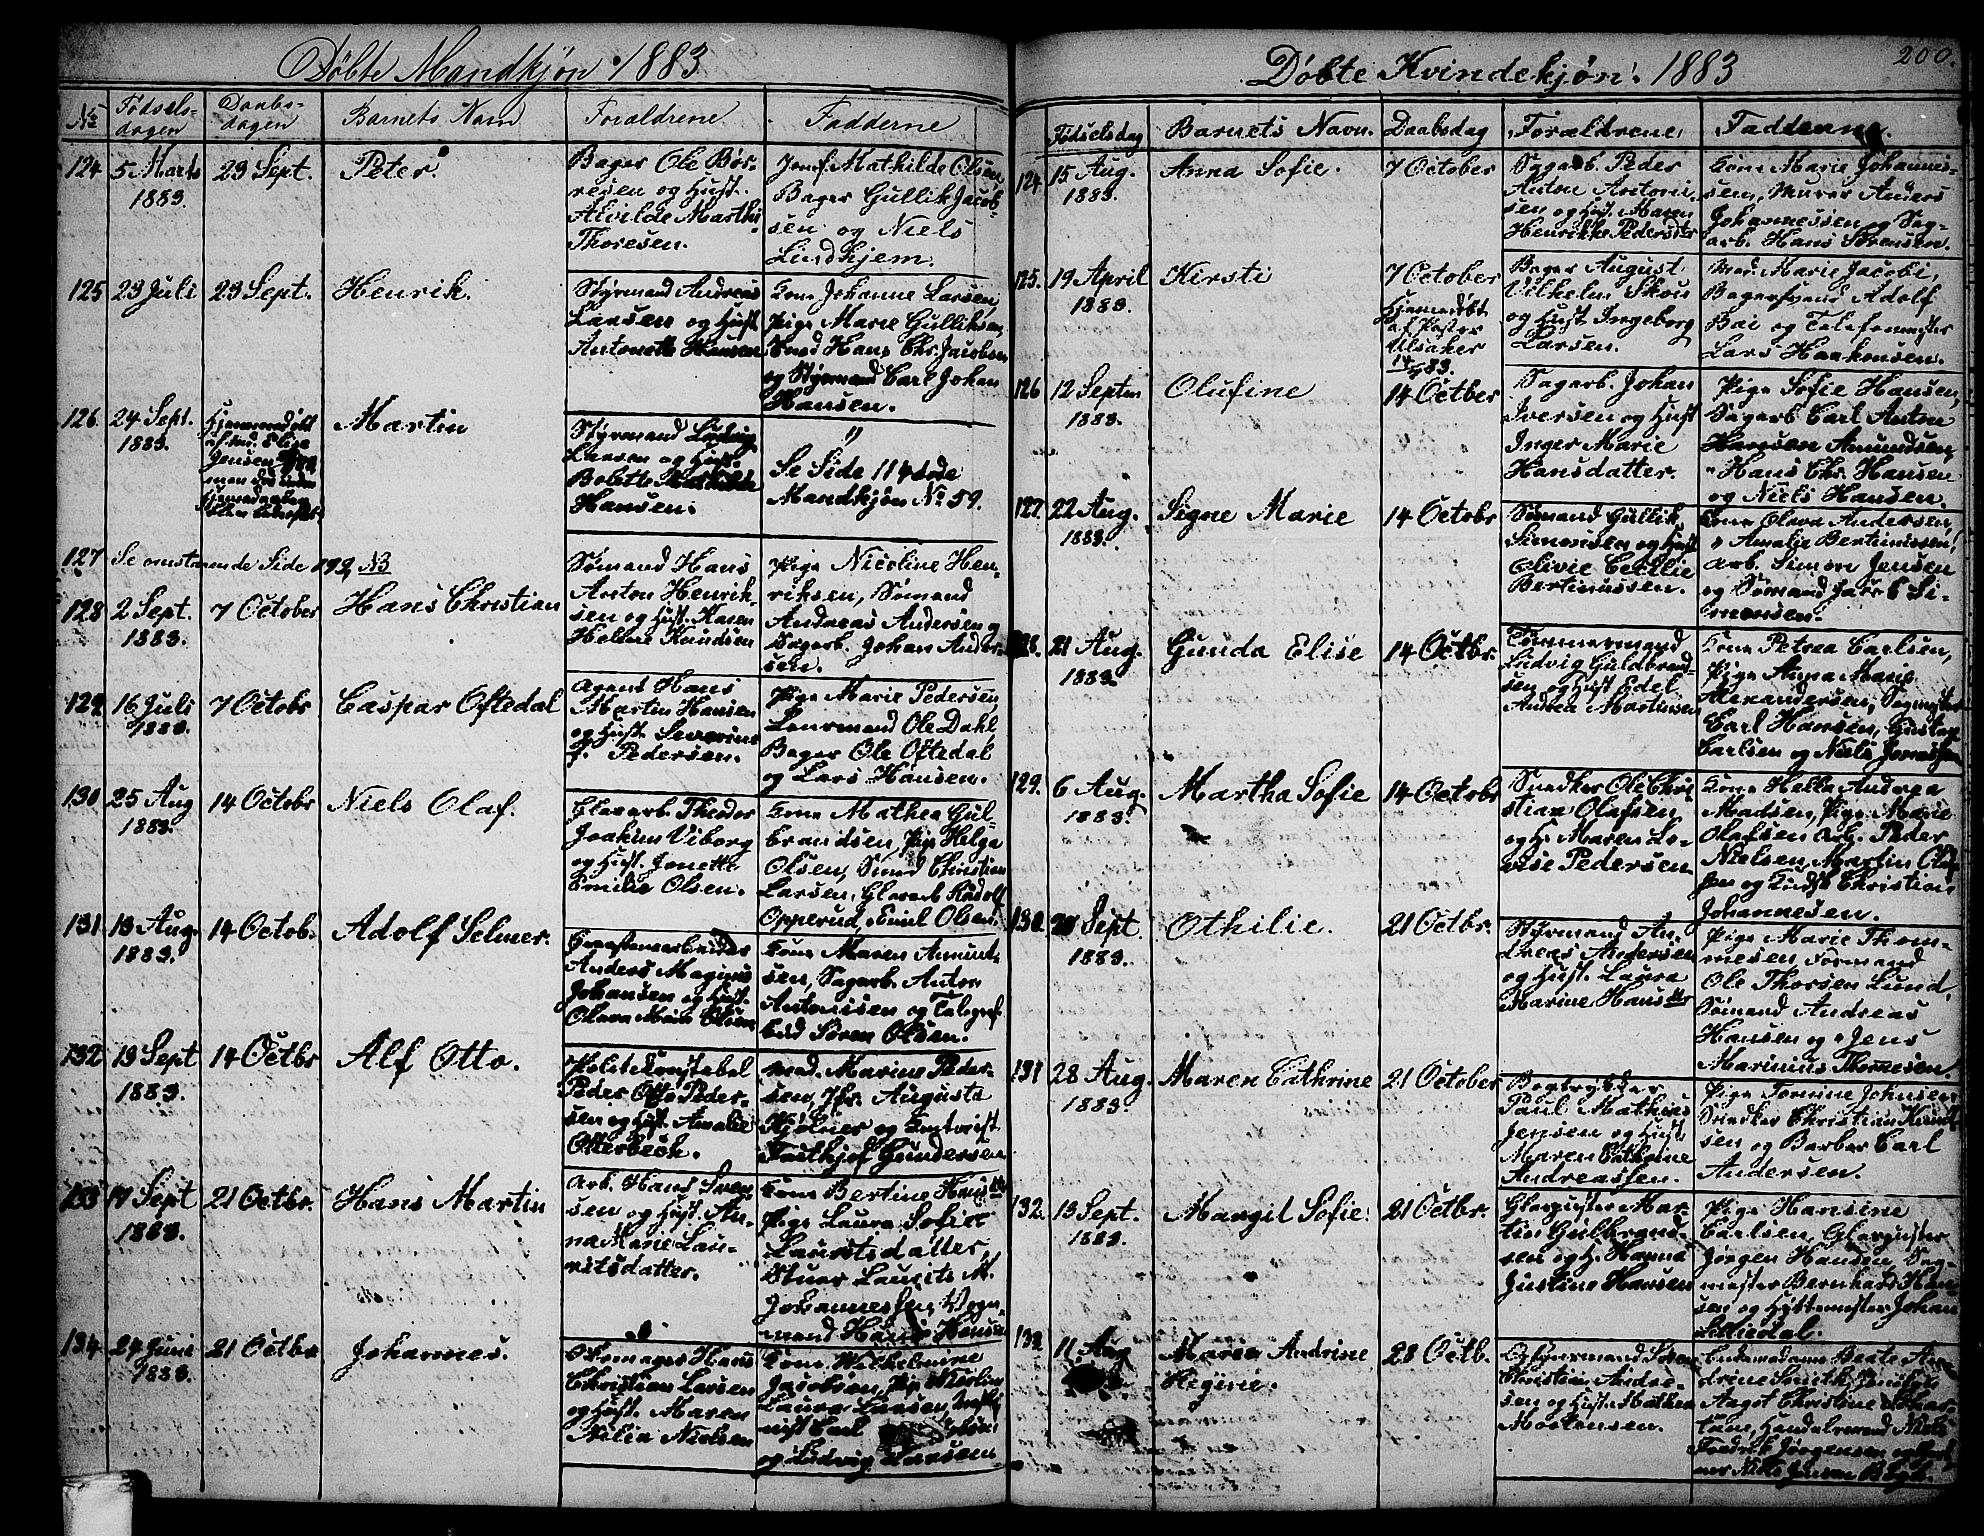 Døbte Mandkjøn 1883
No Fødsels-dagen Daabs-dagen Barnets Navn Forældrene Fadderne
124 5 Marts 1883. 23 Sept. Peter.
Bager Ole Bør-
resen og Hust.
Alvilde Marthi-
Thoresen.
Jomf. Mathilde Olsen
Bager Gullik Jacob-
sen og Niels
Lindkjem.
125 23 Juli 23 Sept. Henrik.
Styrmand Andreas
Larsen og Hust
Antonette Hansen
Kone Johanne Larsen,
Pige Marie Gulliksen,
Smed Hans Chr. Jacobsen
og Styrmand Carl Johan
Hansen.
126. 24 Sept. 1883. Martin
Hjemmedøbt
af Mad. Elise
Jensen
Styrmand Ludvig
Larsen og Hust.
Bolette Mathilde
Hansen.
Se Side 114
Mandkjøn No 59.
127 Se omstaaende Side 199, N3
128 2 Sept. 1883. 7 October Hans Christian
Sømand Hans
Anton Henrik-
sen og Hust. Karen
Helene Knudsen
Pige Nicoline Hen-
riksen, Sømand
Andreas Andersen og
Sagarb. Johan Ander-
sen.
129 16 Juli 1883. 7 Octobr Caspar Oftedal
Agent Hans
Martin Hansen
og Hust. Severine
F. Pedersen.
Pige Marie Pedersen,
Laurmand Ole Dahl,
Bager Ole Oftedal
og Lars Hansen.
130 25 Aug 1883. 14 Octobr Niels Olaf.
Glasarb. Theodor
Joakim Viborg
og Hust. Jonette
Emilie Olsen.
Kone Mathea Gul-
brandsen, Pige Helga
Olsen, Smed Christian
Larsen, Glasarb Rudolf
Opperud, Emil Olsen.
131 13 Aug. 1883. 14 Octob. Adolf Selmer.
Graastensarbeider
Anders Magnus
Johansen og Hust.
Olava Marie Olsen
Kone Maren Amunt-
sen, Sagarb. Anton
Antonissen og Telegraf-
bud Søren Olsen.
132 13 Sept 1883. 14 Octbr Alf Otto.
Politikonstabel
Peder Otto Peder-
sen og Hust. Amalie
Otterbech.
Mad. Marine Peder-
sen, Jfr. Augusta
Kjølner og Kontorist
Frithjof Gundersen
133 17 Sept 1883. 21 Octbr. Hans Martin
Arb. Hans Sven-
sen og Hust. An-
na Marie Lau-
ritsdatter.
Kone Bertine Hansdtr
Pige Laura Sofie
Lauritsdatter,
Stuer Laurits M.
Johannessen, Vogn-
mand Hans Hansen
134 24 Juni 1883. 21 Octbr Johannes.
Skomager Hans
Christian Larsen
og Hust. Maren
Nielsen
Kone Wilhelmine
Jacobsen, Pige
Laura Larsen,
Carl
og Ludvig Larsen
Døbte Kvindekjøn. 1883
200.
Fødselsdag Barnets Navn. Daabsdag Forældrene Fadderne
124 15 Aug. 1883. Anna Sofie. 7 October
Sagarb. Peder
Anton Antoni-
sen og Hust. Maren
Henrikke Pedersdtr
Kone Marie Johannes-
sen, Murer Anders
Johannessen og Sag-
arb. Hans Sørensen.
125. 19 April 1883. Kirsti 7 October
Hjemmedøbt
af Pastor
Ulsaker
Bager August
Vilhelm Skou
og Hust Ingeborg
Larsen.
Mad. Marie Jacobi,
Bagersvend Adolf
Bai og Telefonmester
Lars Haakensen.
126 12 Septm 1883. Olufine 14 Octber
Sagarb. Johan
Iversen og Hust
Inger Marie
Hansdatter.
Pige Sofie Hansen,
Sagarb Carl Anton
Hansen Amundsen,
Hans Chr. Hansen
og Niels Hansen.
127. 22 Aug. 1883. Signe Marie 14 Octobr
Sømand Gullik
Simonsen og Hust
Olivie Cecilie
Bertinussen.
Kone Olava Andersen,
" Amalie Bertinussen,
arb. Simon Jensen
og Sømand Jacob Si-
monsen.
128. 21 Aug. 1883. Gunda Elise 14 Octbr.
Tømmermand
Ludvig Guldbrand-
sen og Hust Edel
Andrea Martinsen
Kone Petrea Carlsen,
Pige Anna Marie
Alexandersen, Sagmester
Carl Hansen, Gustav
Carlsen og Niels
129. 6 Aug. 1883. Martha Sofie 14 Octobr
Snedker Ole Chri-
stian Olafsen
og H. Maren Lo-
vise Pedersen
Kone Helle Andrea
Madsen, Pige Marie
Olafsen Arb. Peder
Nielsen, Martin Olaf-
sen og Kudsk Christian
Johannesen.
130. Sept. 1883. Othilie. 21 Octbr.
Styrmand An-
dreas Andersen
og Hust. Laura
Marine Hansdtr
Pige Marie Thom-
mesen Formand
Ole Thorsen Lund,
Sømand Andreas
Hansen og Jens
Marinius Thomesen.
131 28 Aug. 1883. Maren Cathrine 21 October
Bogtrykker
Paul Mathias
Jensen og Hust
Maren Cathrine
Andreassen.
Pige Tomine Johnsen
Snedker Christian Knud-
sen og Barber Carl
Andersen.
132. 13 Sept. 1883. Margit Sofie. 21 Octbr.
Glaspuster Mar-
tin Gulbrand-
sen og H. Hanna
Justine Hansen
Pige Hansine
Carlsen, Glaspuster
Jørgen Hansen, Sag-
mester Bernhard Han-
sen og Hyttemester Johan
Schiedal.
133. 11 Aug Maren Andrine Higine. 28 Octb.
Opsynsmand Søren
Christian Andre-
sen og Hust. Mathea
Mortensen.
Enkemadame Beate An-
drine Smith,
Aagot Christine
Handelsmand Niels
Fredrik Jørgensen
Niels